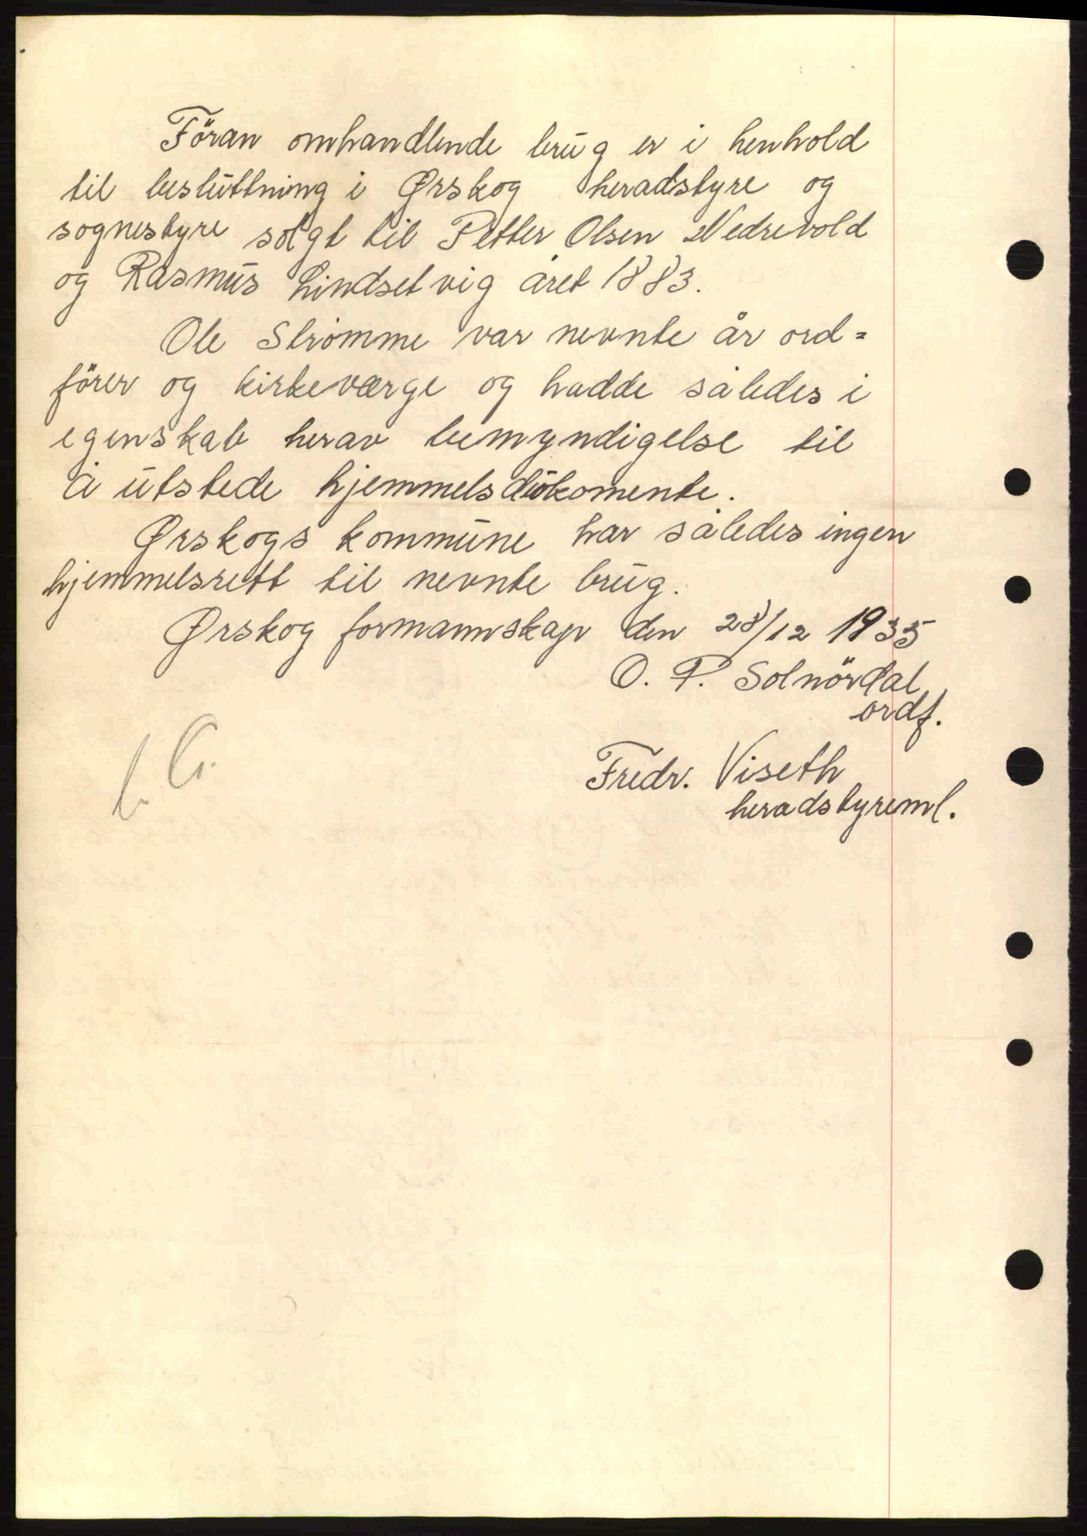 Föran omhandlende brug er i henhold
til besluttning i Ørskog heradstyre og
sognestyre solgt til Petter Olsen Nedrevold
og Rasmus Lindset vig året 1883.
Ole Strømme var nevnte år ord=
förer og kirkeværge og hadde således i
egenskab herav bemyndigelse til
å utstede hjemmelsdokomente.
Ørskogs kommune har således ingen
hjemmelsrett til nevnte brug.
Ørskog formannskap den 28/12 1935
O. P. Solnördal
ordf.
Fredr. Viseth
heradstyreml.